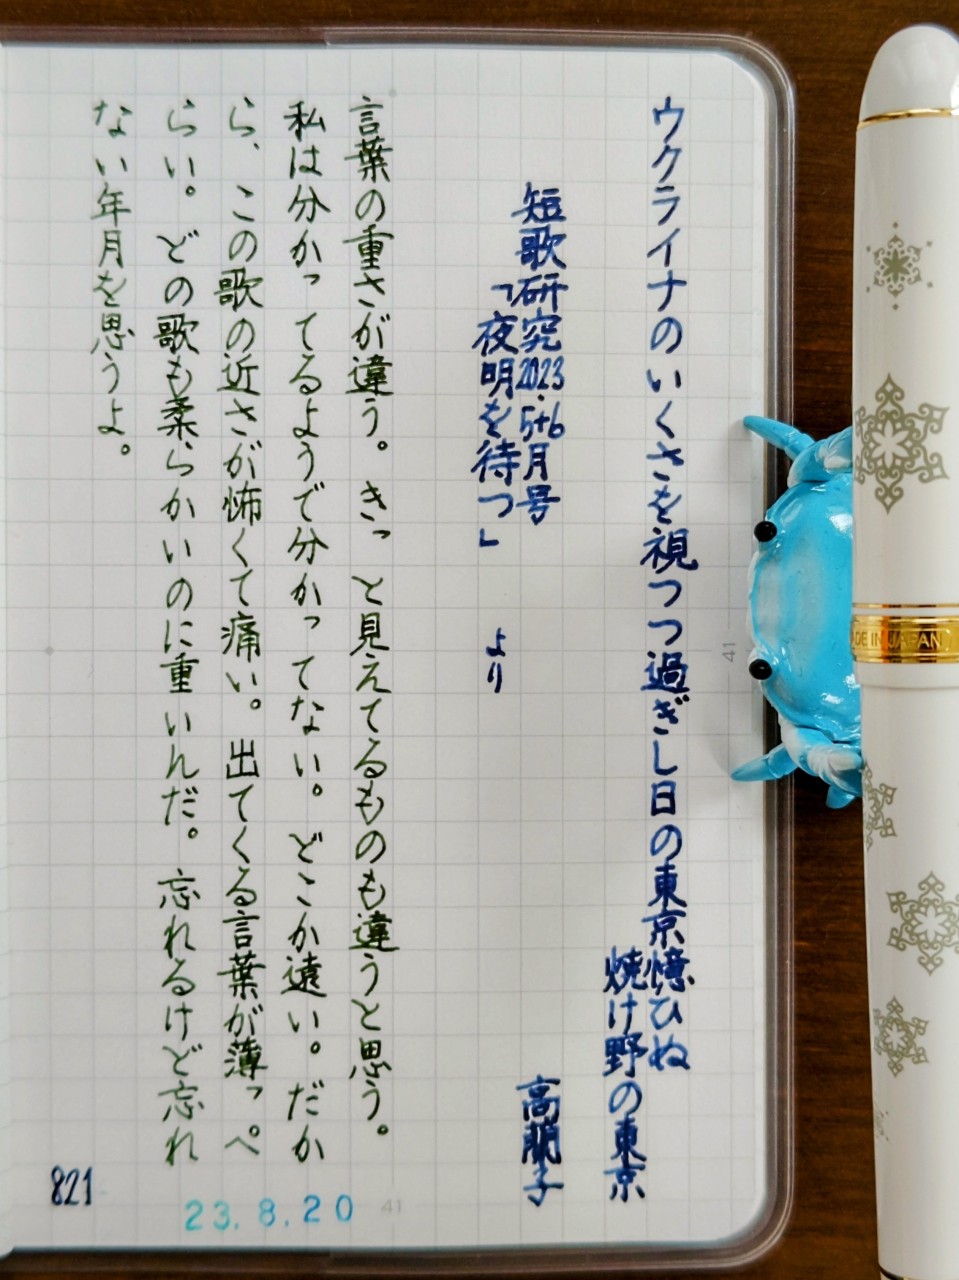 ウクライナのいくさを視つつ過ぎし日の東京憶ひぬ
焼け野の東京
高朋子
短歌研究2023.5+6月号
「夜明を待つ」 より
言葉の重さが違う。きっと見えてるものも違うと思う。
私は分かってるようで分かってない。どこか遠い。だか
ら、この歌の近さが怖くて痛い。出てくる言葉が薄っぺ
らい。どの歌も柔らかいのに重いんだ。忘れるけど忘れ
ない年月を思うよ。
821
23.8.20
41
41
DE IN JAPAN